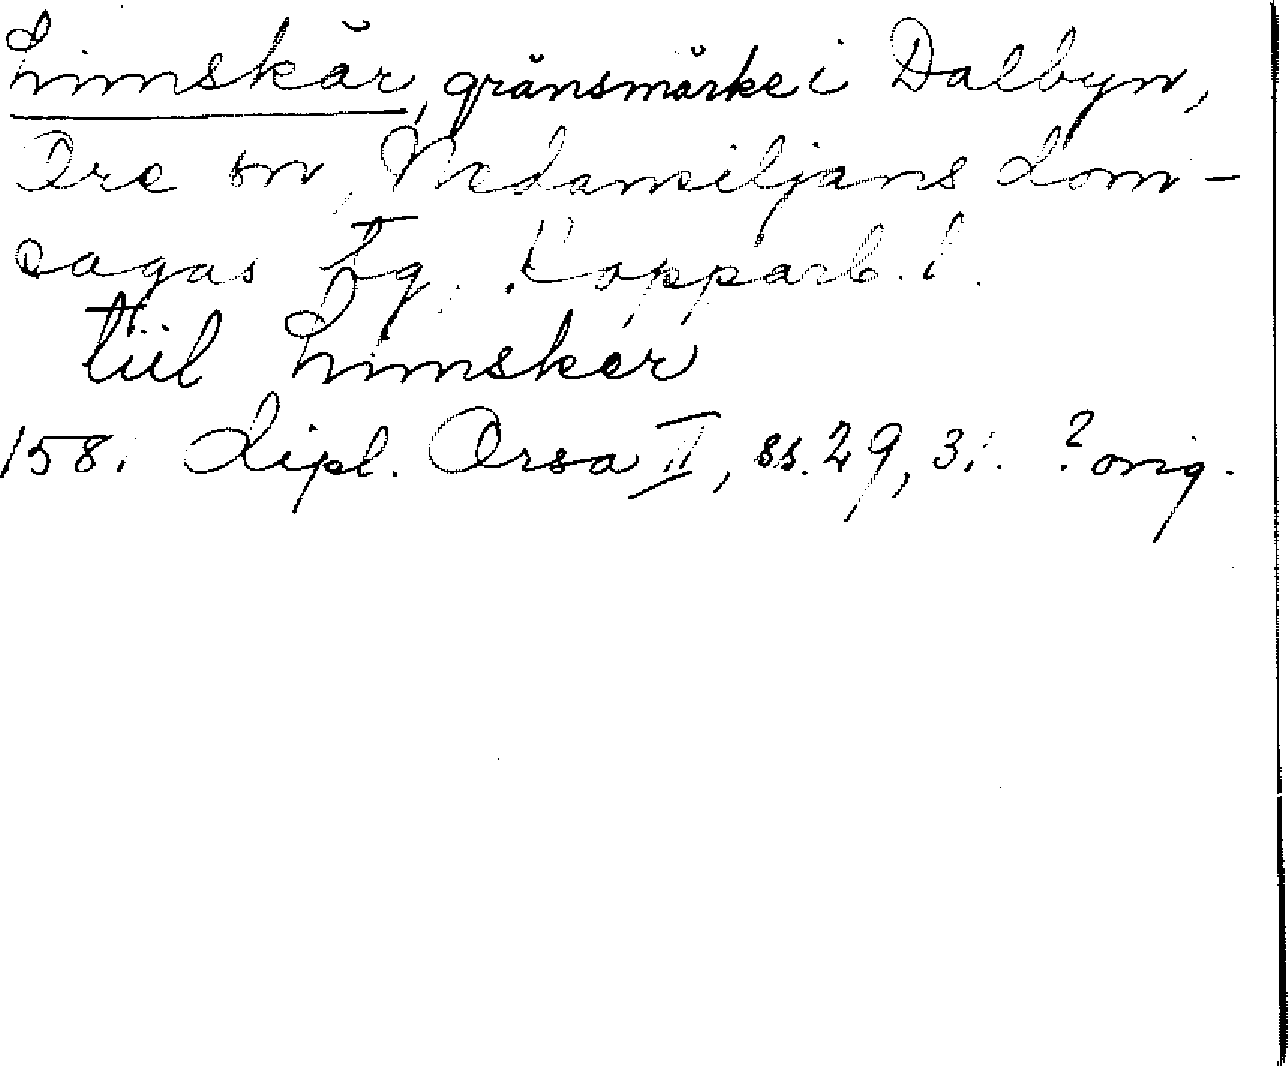 Limskär, gränsmärke i Dalbyn,
Ore sn, Nedansiljans dom-
sagas tg. Kopparb. l.
tiil Limsker
1581 Dipl. Orsa II, ss. 29, 31. ? orig.